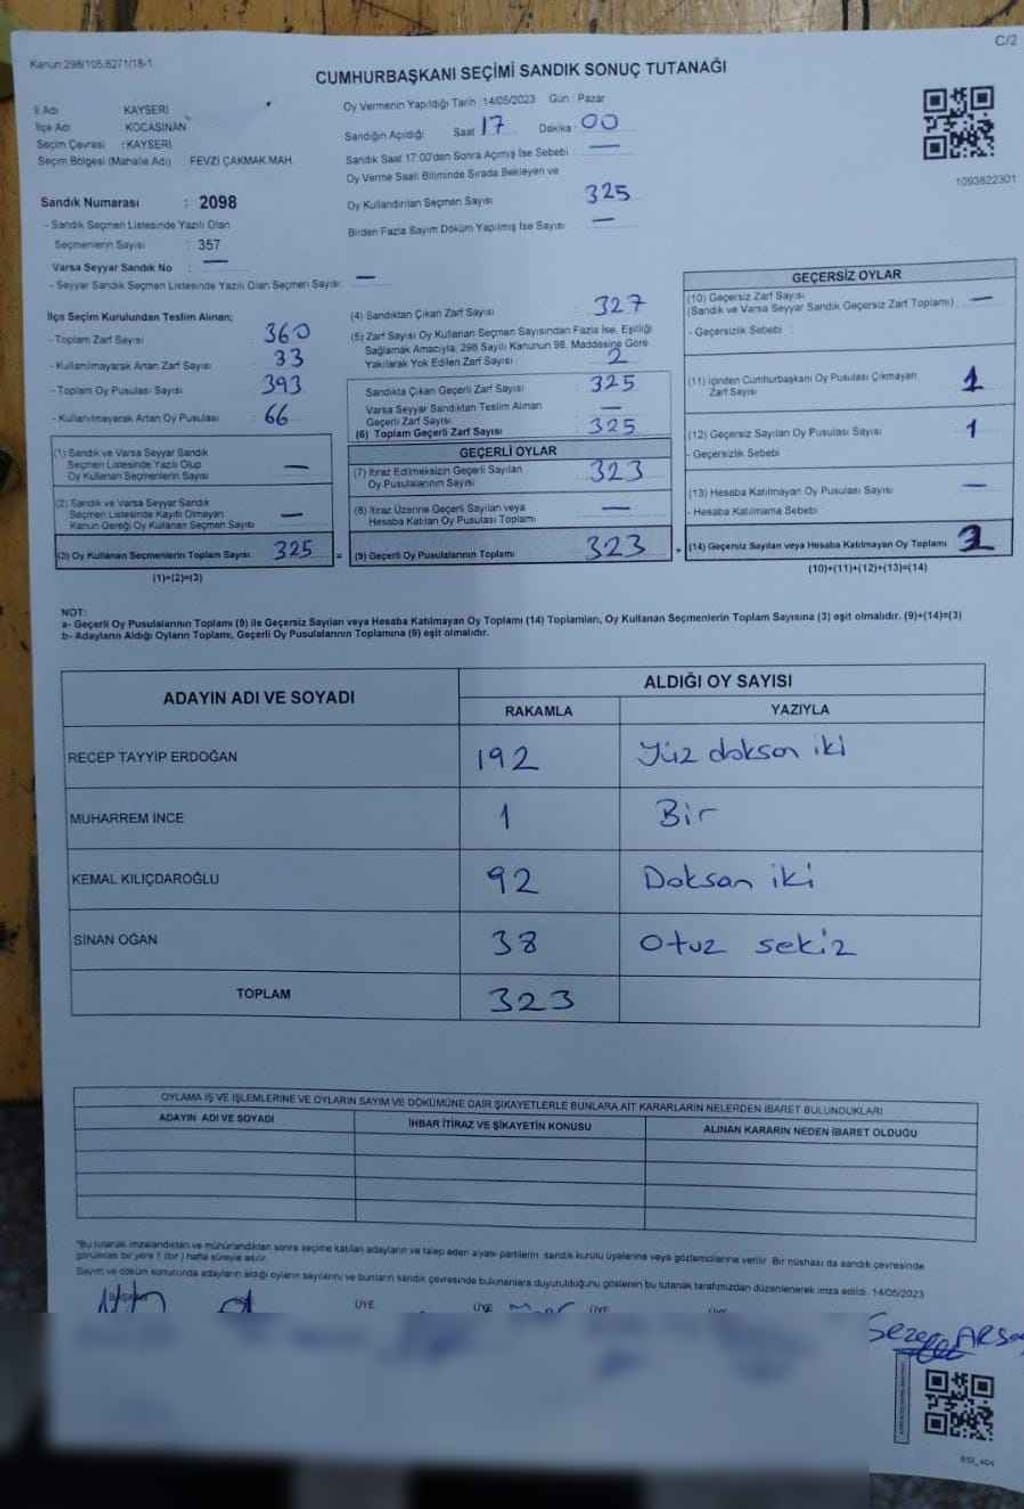 C/2
Kanun:298/105,6271/18-1
CUMHURBAŞKANI SEÇİMİ SANDIK SONUÇ TUTANAĞI
İl Adı KAYSERİ
İlçe Adı KOCASİNAN
Seçim Çevresi : KAYSERİ
Seçim Bölgesi (Mahalle Adı) FEVZİ ÇAKMAK MAH.
Sandık Numarası : 2098
- Sandık Seçmen Listesinde Yazılı Olan
Seçmenlerin Sayısı : 357
Varsa Seyyar Sandık No : —
- Seyyar Sandık Seçmen Listesinde Yazılı Olan Seçmen Sayısı: —
Oy Vermenin Yapıldığı Tarih : 14/05/2023 Gün : Pazar
Sandığın Açıldığı Saat 17 Dakika : 00
Sandık Saat 17:00'den Sonra Açılmış İse Sebebi : —
Oy Verme Saati Bitiminde Sırada Bekleyen ve
Oy Kullandırılan Seçmen Sayısı 325
Birden Fazla Sayım Döküm Yapılmış İse Sayısı —
1093822301
İlçe Seçim Kurulundan Teslim Alınan;
- Toplam Zarf Sayısı : 360
- Kullanılmayarak Artan Zarf Sayısı : 33
- Toplam Oy Pusulası Sayısı : 393
- Kullanılmayarak Artan Oy Pusulası : 66
(1) Sandık ve Varsa Seyyar Sandık
Seçmen Listesinde Yazılı Olup
Oy Kullanan Seçmenlerin Sayısı —
(2) Sandık ve Varsa Seyyar Sandık
Seçmen Listesinde Kayıtlı Olmayan
Kanun Gereği Oy Kullanan Seçmen Sayısı —
(3) Oy Kullanan Seçmenlerin Toplam Sayısı 325 =
(1)+(2)=(3)
(4) Sandıktan Çıkan Zarf Sayısı 327
(5) Zarf Sayısı Oy Kullanan Seçmen Sayısından Fazla İse, Eşitliği
Sağlamak Amacıyla, 298 Sayılı Kanunun 98. Maddesine Göre
Yakılarak Yok Edilen Zarf Sayısı : 2
Sandıkta Çıkan Geçerli Zarf Sayısı 325
Varsa Seyyar Sandıktan Teslim Alınan
Geçerli Zarf Sayısı —
(6) Toplam Geçerli Zarf Sayısı 325
GEÇERLİ OYLAR
(7) İtiraz Edilmeksizin Geçerli Sayılan
Oy Pusulalarının Sayısı 323
(8) İtiraz Üzerine Geçerli Sayılan veya
Hesaba Katılan Oy Pusulası Toplamı —
(9) Geçerli Oy Pusulalarının Toplamı 323 +
GEÇERSİZ OYLAR
(10) Geçersiz Zarf Sayısı
(Sandık ve Varsa Seyyar Sandık Geçersiz Zarf Toplamı) —
- Geçersizlik Sebebi :
(11) İçinden Cumhurbaşkanı Oy Pusulası Çıkmayan
Zarf Sayısı 1
(12) Geçersiz Sayılan Oy Pusulası Sayısı 1
- Geçersizlik Sebebi
(13) Hesaba Katılmayan Oy Pusulası Sayısı —
- Hesaba Katılmama Sebebi
(14) Geçersiz Sayılan veya Hesaba Katılmayan Oy Toplamı 2
(10)+(11)+(12)+(13)=(14)
NOT:
a- Geçerli Oy Pusulalarının Toplamı (9) ile Geçersiz Sayılan veya Hesaba Katılmayan Oy Toplamı (14) Toplamları, Oy Kullanan Seçmenlerin Toplam Sayısına (3) eşit olmalıdır. (9)+(14)=(3)
b- Adayların Aldığı Oyların Toplamı, Geçerli Oy Pusulalarının Toplamına (9) eşit olmalıdır.
ADAYIN ADI VE SOYADI ALDIĞI OY SAYISI
RAKAMLA YAZIYLA
RECEP TAYYİP ERDOĞAN 192 Yüz doksan iki
MUHARREM İNCE 1 Bir
KEMAL KILIÇDAROĞLU 92 Doksan iki
SİNAN OĞAN 38 Otuz sekiz
TOPLAM 323
OYLAMA İŞ VE İŞLEMLERİNE VE OYLARIN SAYIM VE DÖKÜMÜNE DAİR ŞİKAYETLERLE BUNLARA AİT KARARLARIN NELERDEN İBARET BULUNDUKLARI
ADAYIN ADI VE SOYADI İHBAR İTİRAZ VE ŞİKAYETİN KONUSU ALINAN KARARIN NEDEN İBARET OLDUĞU
*Bu tutanak imzalandıktan ve mühürlendikten sonra seçime katılan adayların ve talep eden siyasi partilerin sandık kurulu üyelerine veya gözlemcilerine verilir. Bir nüshası da sandık çevresinde
görülecek bir yere 1 (bir) hafta süreyle asılır.
Sayım ve döküm sonucunda adayların aldığı oyların sayılarını ve bunların sandık çevresinde bulunanlara duyurulduğunu gösteren bu tutanak tarafımızdan düzenlenerek imza edildi. 14/05/2023
ÜYE ÜYE ÜYE